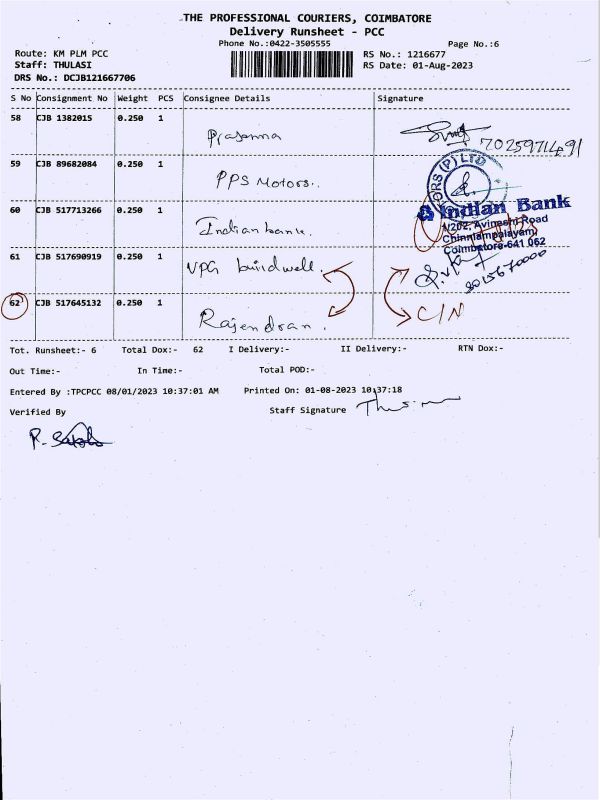 THE PROFESSIONAL COURIERS, COIMBATORE
Delivery Runsheet - PCC
Phone No.:0422-3505555
Page No.:6
Route: KM PLM PCC
RS No.: 1216677
Staff: THULASI
RS Date: 01-Aug-2023
DRS No.: DCJB121667706
S No Consignment No Weight PCS Consignee Details Signature
58 CJB 1382015 0.250 1 Prasanna
59 CJB 89682084 0.250 1 PPS Motors.
60 CJB 517713266 0.250 1 Indian bank.
Indian Bank
1/202, Avinashi Road
Chinniampalayam,
Coimbatore-641 062
61 CJB 517690919 0.250 1 VPG buildwell.
62 CJB 517645132 0.250 1 Rajendran. C/N
Tot. Runsheet:- 6 Total Dox:- 62 I Delivery:- II Delivery:- RTN Dox:-
Out Time:- In Time:- Total POD:-
Entered By :TPCPCC 08/01/2023 10:37:01 AM Printed On: 01-08-2023 10:37:18
Verified By Staff Signature